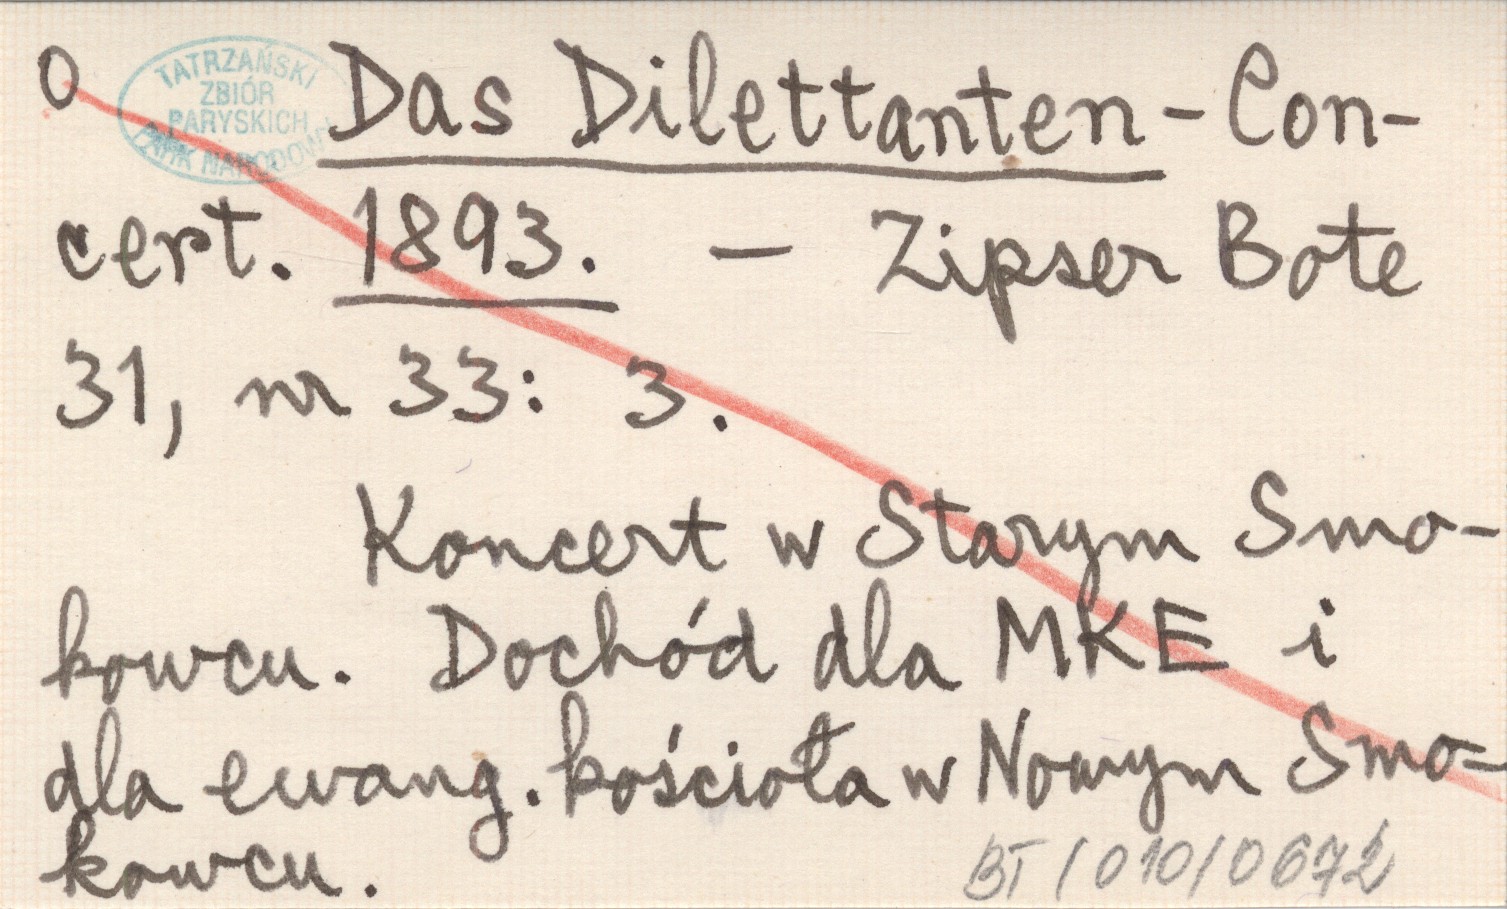 0
TATRZAŃSKI
ZBIÓR
PARYSKICH
PARK NARODOWY
Das Dilettanten-Con-
cert. 1893. — Zipser Bote
31, nr 33: 3.
Koncert w Starym Smo-
kowcu. Dochód dla MKE i
dla ewang. kościoła w Nowym Smo-
kowcu.
BT/010/0672